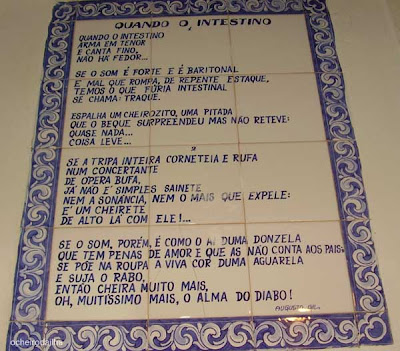 QUANDO O INTESTINO
QUANDO O INTESTINO
ARMA EM TENOR
E CANTA FINO,
NÃO HÁ FEDOR...
SE O SOM É FORTE E É BARITONAL
E MAL QUE ROMPA, DE REPENTE ESTAQUE,
TEMOS O QUE FÚRIA INTESTINAL
SE CHAMA: TRAQUE.
ESPALHA UM CHEIROZITO, UMA PITADA
QUE O BEQUE SURPREENDEU MAS NÃO RETEVE:
QUASE NADA...
COISA LEVE...
SE A TRIPA INTEIRA CORNETEIA E RUFA
NUM CONCERTANTE
DE OPERA BUFA,
JÁ NÃO É SIMPLES SAINETE
NEM A SONÂNCIA, NEM O MAIS QUE EXPELE:
É UM CHEIRETE
DE ALTO LÁ COM ELE!...
SE O SOM, PORÉM, É COMO O AI DUMA DONZELA
QUE TEM PENAS DE AMOR E QUE AS NÃO CONTA AOS PAIS:
SE PÕE NA ROUPA A VIVA COR DUMA AGUARELA
E SUJA O RABO,
ENTÃO CHEIRA MUITO MAIS,
OH, MUITÍSSIMO MAIS, O ALMA DO DIABO!
AUGUSTO GIL.